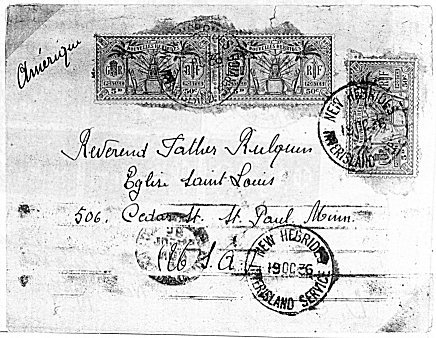 Amérique
NOUVELLES HEBRIDES
RF
NEW HEBRIDES
19 OC 36
INTERISLAND SERVICE
Reverend Father Rulquin
Eglise Saint Louis
506, Cedar St. St. Paul Minn.
(U. S. A.)
NEW HEBRIDES
19 OC 36
INTERISLAND SERVICE